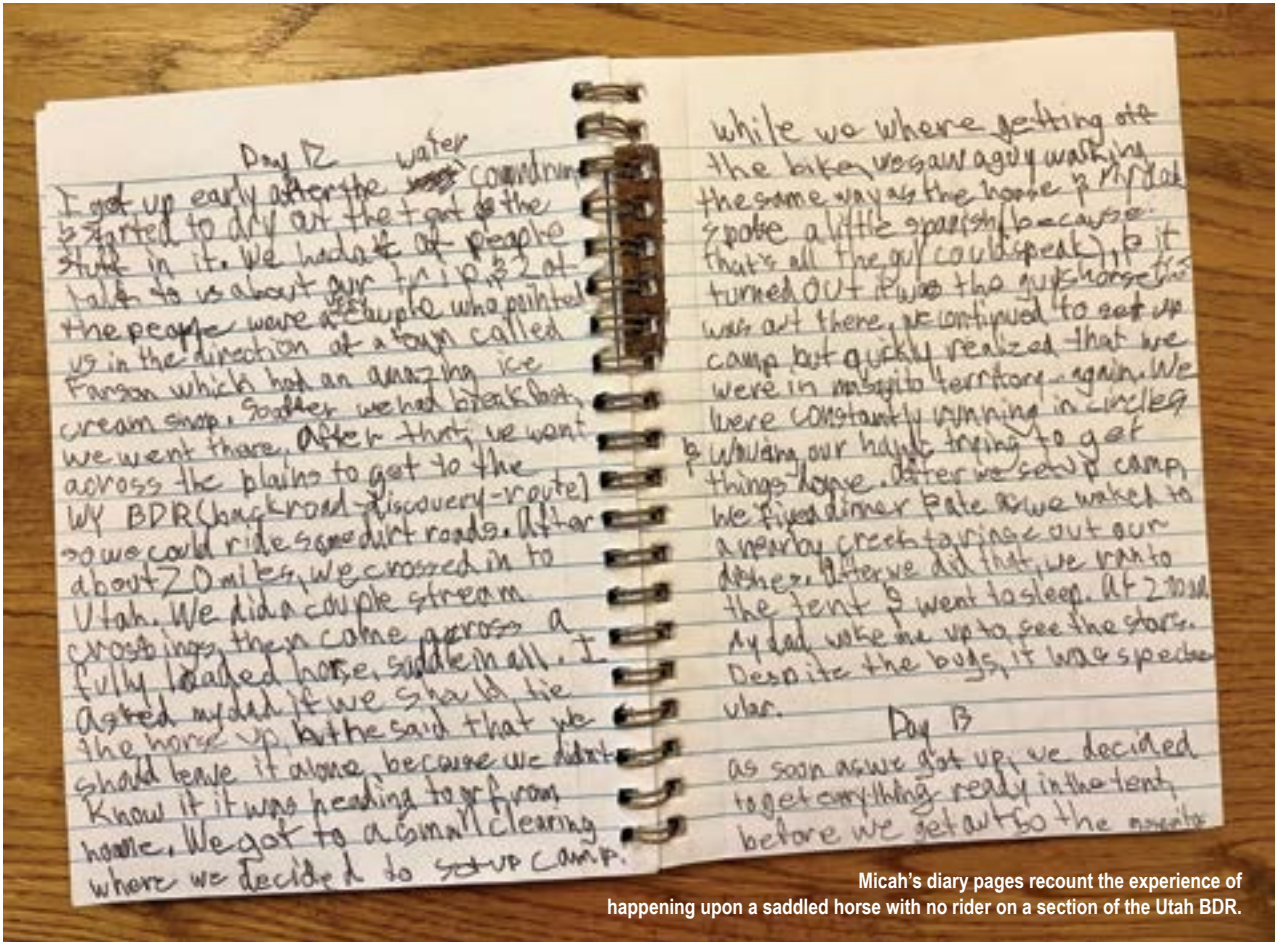 Day 12 water
I got up early after the conundrum
& started to dry out the tent & the
stuff in it. We had a lot of people
talk to us about our trip, & 2 of
the people were a couple who pointed
us in the direction of a town called
Farson which had an amazing ice
cream shop. So after we had breakfast,
we went there. After that, we went
across the plains to get to the
WY BDR (backroad-discovery-route)
so we could ride some dirt roads. After
about 20 miles, we crossed in to
Utah. We did a couple stream
crossings, then come across a
fully loaded horse, saddle in all. I
asked my dad if we should tie
the horse up, but he said that we
should leave it alone, because we didn't
know if it was heading to or from
home. We got to a small clearing
where we decided to set up camp.
while we where getting off
the bike, we saw a guy walking
the same way as the horse & my dad
spoke a little spanish (because
that's all the guy could speak), & it
turned out it was the guys horse that
was out there, we continued to set up
camp but quickly realized that we
were in mosqito territory again. We
were constantly running in circles
& waving our hands trying to get
things done. After we set up camp,
we fixed dinner & ate as we walked to
a nearby creek to rinse out our
dishes. After we did that, we ran to
the tent & went to sleep. At 2
My dad woke me up to see the stars.
Despite the bugs, it was spectac
ular.
Day 13
as soon as we got up, we decided
to get everything ready in the tent,
before we get out so the
Micah's diary pages recount the experience of
happening upon a saddled horse with no rider on a section of the Utah BDR.